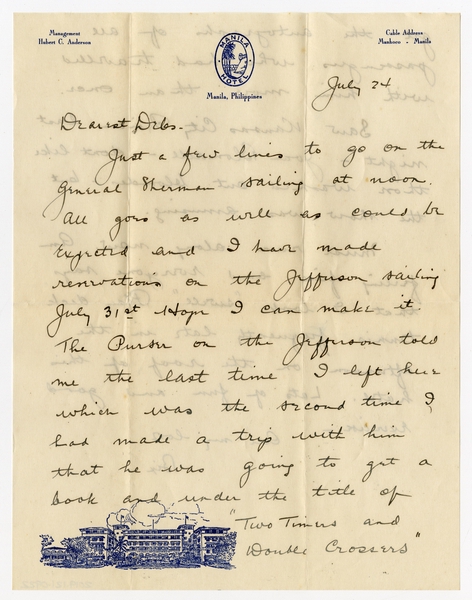 Management
Hubert C. Anderson
MANILA HOTEL
Manila, Philippines
Cable Address
Manhoco - Manila
July 24
Dearest Debs-
Just a few lines to go on the
General Sherman sailing at noon.
All goes as well as could be
expected and I have made
reservations on the Jefferson sailing
July 31st Hope I can make it.
The Purser on the Jefferson told
me the last time I left here
which was the second time I
had made a trip with him
that he was going to get a
book and under the title of
"Two Timers and
Double Crossers"